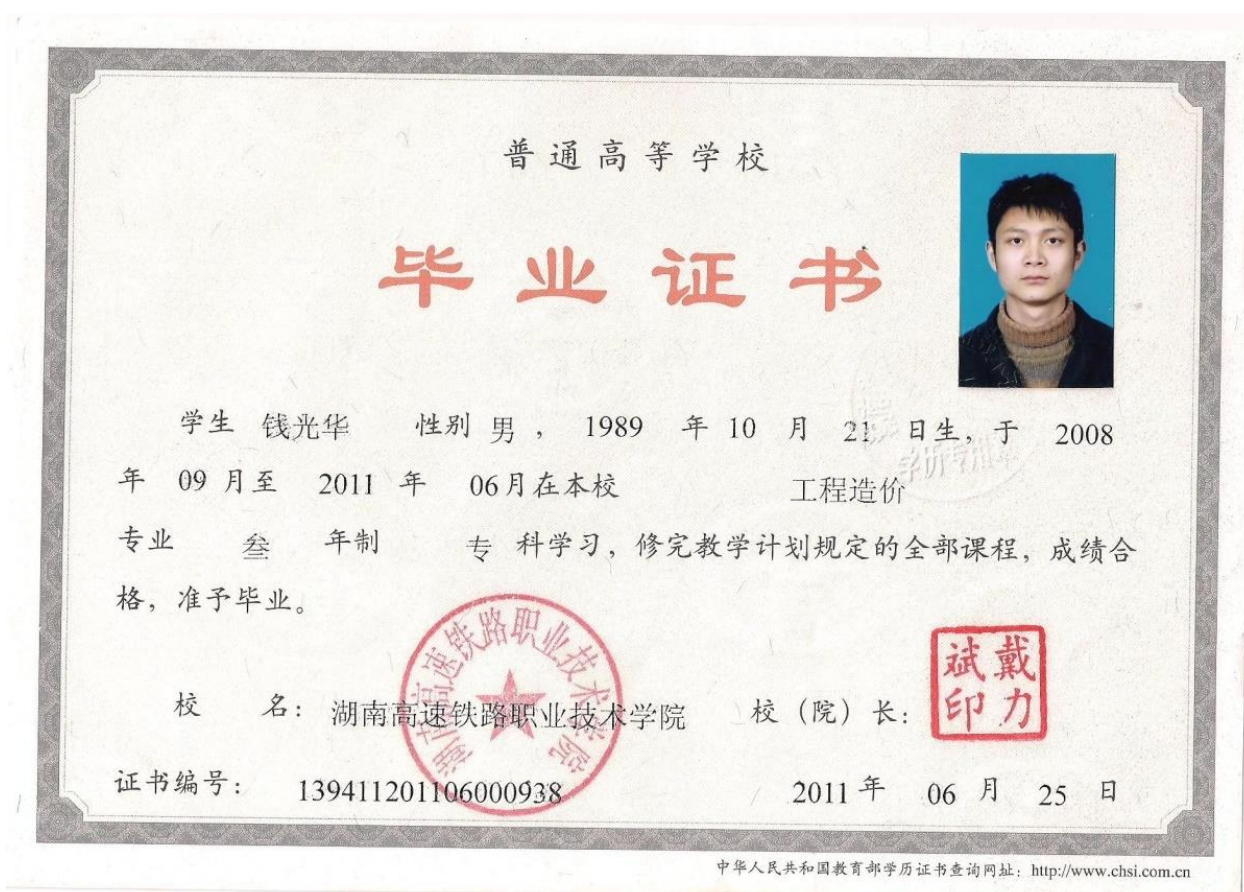 普通高等学校
毕业证书
学生 钱光华 性别 男 , 1989 年 10 月 21 日生, 于 2008
年 09 月至 2011 年 06月在本校 工程造价
专业 叁 年制 专 科学习, 修完教学计划规定的全部课程, 成绩合
格, 准予毕业。
湖南高速铁路职业技术学院
戴力斌印
校 名: 湖南高速铁路职业技术学院 校(院)长:
证书编号: 139411201106000938 2011 年 06 月 25 日
中华人民共和国教育部学历证书查询网址: http://www.chsi.com.cn
学历专用章